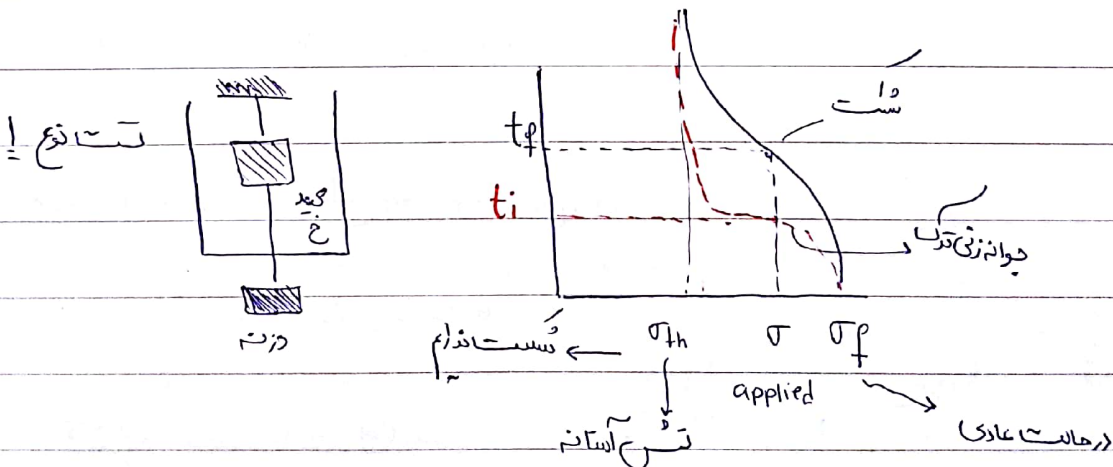 تست نوع 1
محیط
خ
وزنه
tf
ti
شکست
جوانه زنی ترک
شکست نداریم ← σth
σ
applied
σf
تنش آستانه
در حالت عادی